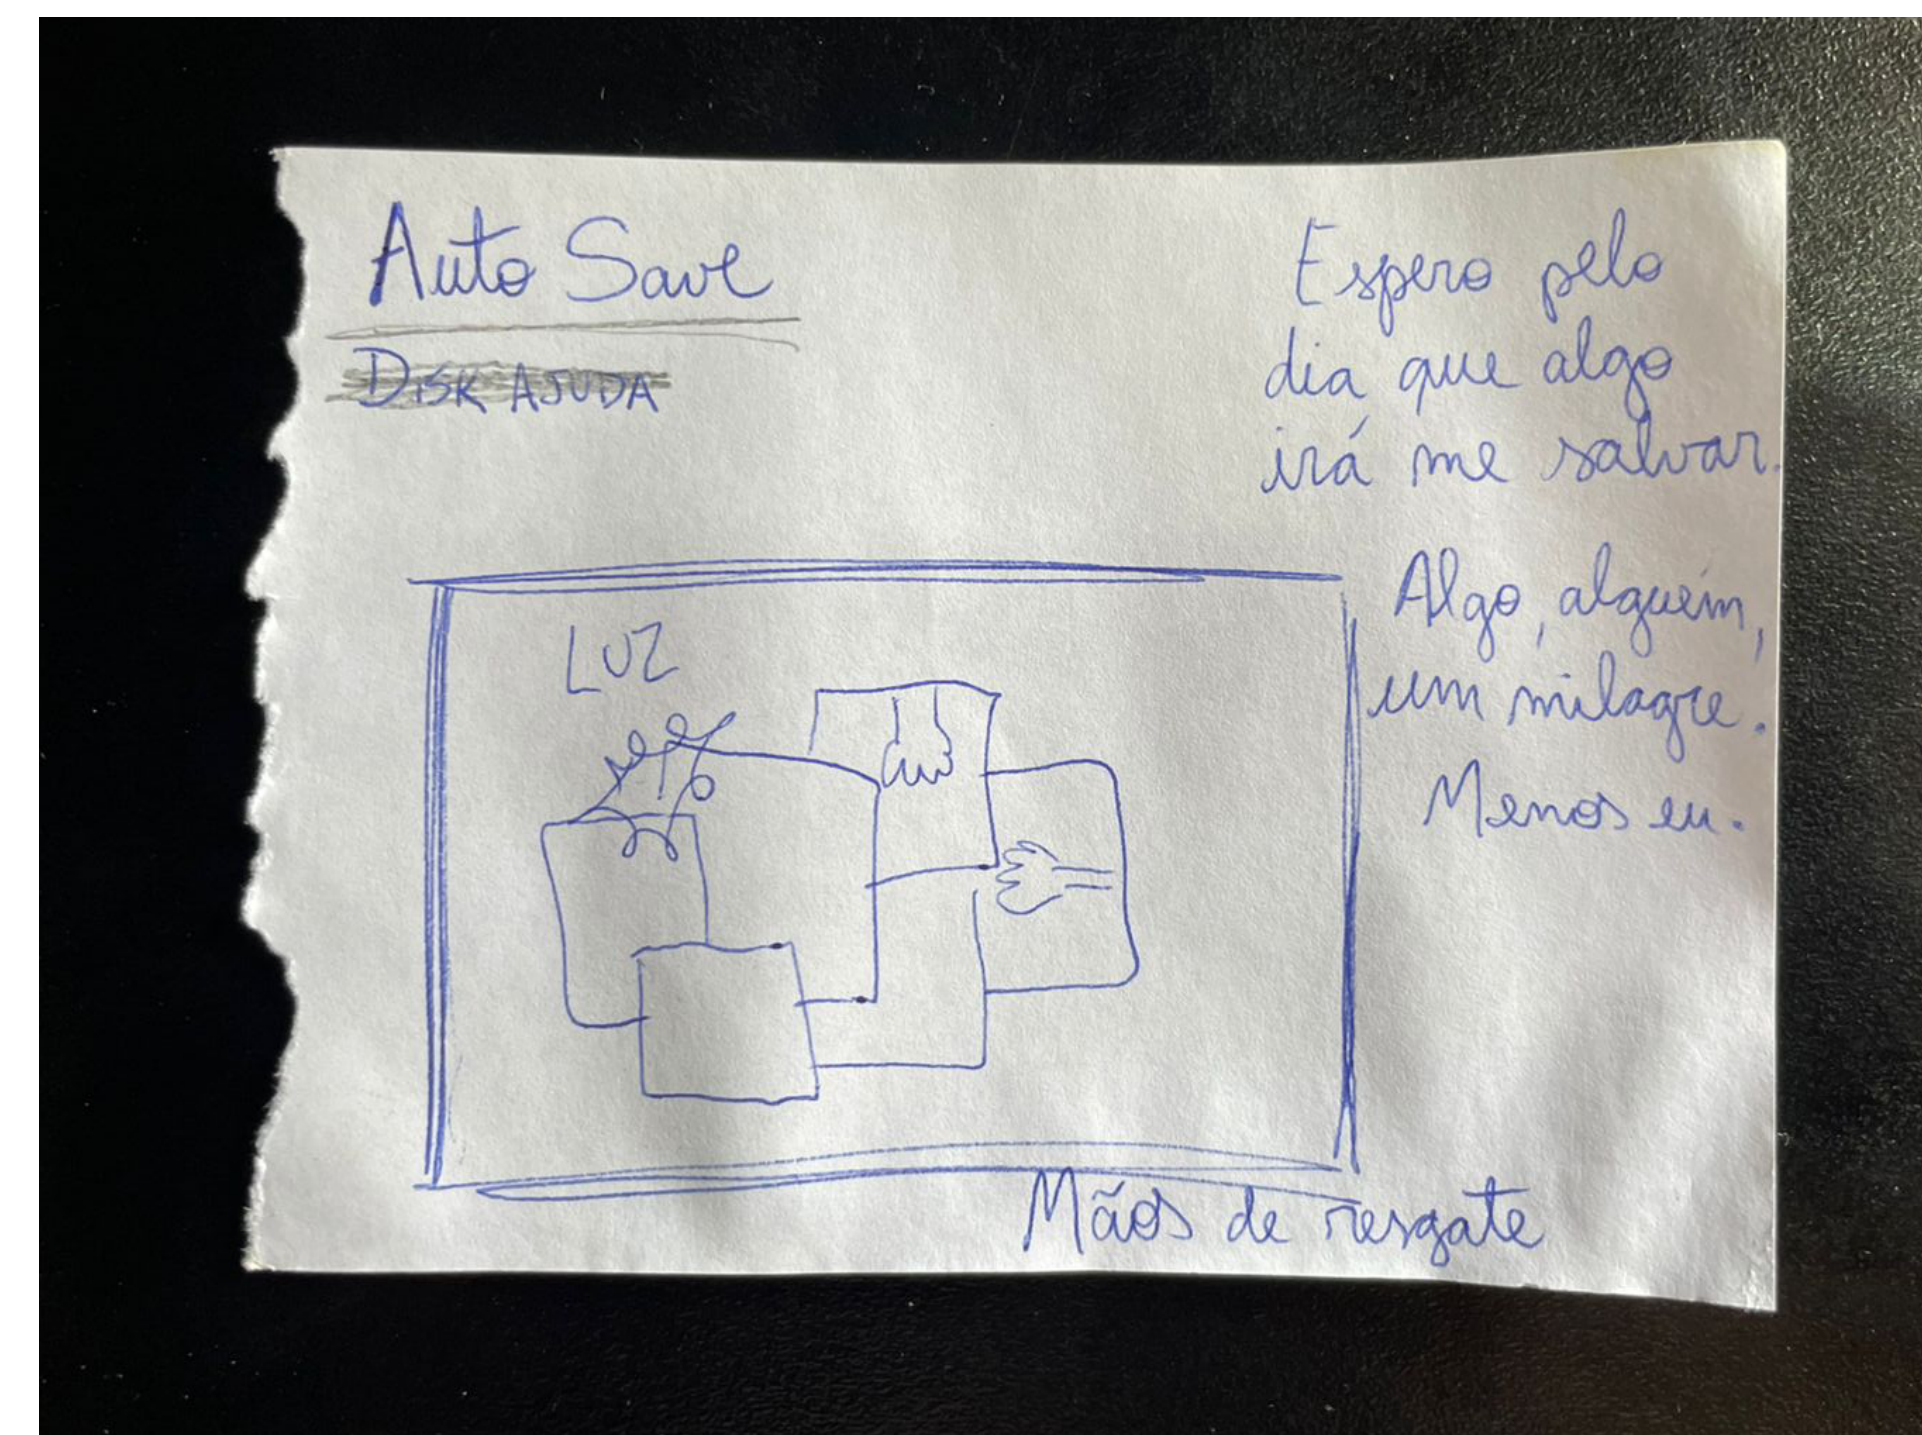 Auto Save
DISK AJUDA
Espero pelo
dia que algo
irá me salvar.
Algo, alguém,
um milagre.
Menos eu.
LUZ
Mãos de resgate